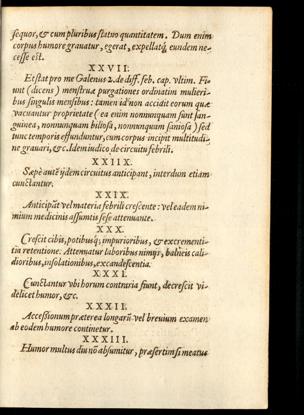 sequor, & cum pluribus statuo quantitatem. Dum enim
corpus humore grauatur, egerat, expellatq́; eundem ne-
cesse est.
XXVII.
Et stat pro me Galenus 2. de diff. feb. cap. vltim. Fi-
unt (dicens) menstruæ purgationes ordinatim mulieri-
bus singulis mensibus: tamen id non accidit eorum quæ
vacuantur proprietate (ea enim nonnunquam sunt san-
guinea, nonnunquam biliosa, nonnunquam saniosa) sed
tunc temporis effunduntur, cum corpus incipit multitudi-
ne grauari, &c. Idem iudico de circuitu febrili.
XXIIX.
Sæpè autē ijdem circuitus anticipant, interdum etiam
cunctantur.
XXIX.
Anticipāt vel materia febrili crescente: vel eadem ni-
mium medicinis assumtis sese attenuante.
XXX.
Crescit cibis, potibusq́; impurioribus, & excrementi-
tia retentione: Attenuatur laboribus nimijs, balneis cali-
dioribus, insolationibus, excandescentia.
XXXI.
Cunctantur vbi horum contraria fiunt, decrescit vi-
delicet humor, &c.
XXXII.
Accessionum præterea longarū vel breuium examen
ab eodem humore continetur.
XXXIII.
Humor multus diu nō absumitur, præsertim si meatus